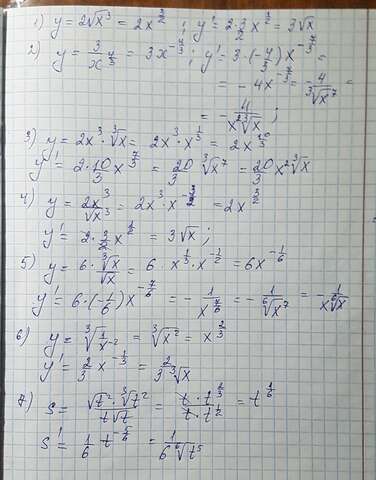 1) y = 2√x³ = 2x^{3/2} ; y' = 2·3/2 x^{1/2} = 3√x
2) y = 3/x^{4/3} = 3x^{-4/3} ; y' = 3·(-4/3) x^{-7/3} =
= -4x^{-7/3} = -4/∛x⁷ =
= -4/(x² ∛x) ;
3) y = 2x³·∛x = 2x³·x^{1/3} = 2x^{10/3}
y' = 2·10/3 x^{7/3} = 20/3 ∛x⁷ = 20/3 x² ∛x
4) y = 2x³/√x³ = 2x³·x^{-3/2} = 2x^{3/2}
y' = 2·3/2 x^{1/2} = 3√x ;
5) y = 6·∛x/√x = 6·x^{1/3}·x^{-1/2} = 6x^{-1/6}
y' = 6·(-1/6) x^{-7/6} = -1/x^{7/6} = -1/⁶√x⁷ = -1/(x ⁶√x)
6) y = ∛(1/x⁻²) = ∛x² = x^{2/3}
y' = 2/3 x^{-1/3} = 2/(3 ∛x)
7) s = √t²·∛t²/(t√t) = t·t^{2/3}/(t·t^{1/2}) = t^{1/6}
s' = 1/6 t^{-5/6} = 1/(6 ⁶√t⁵)